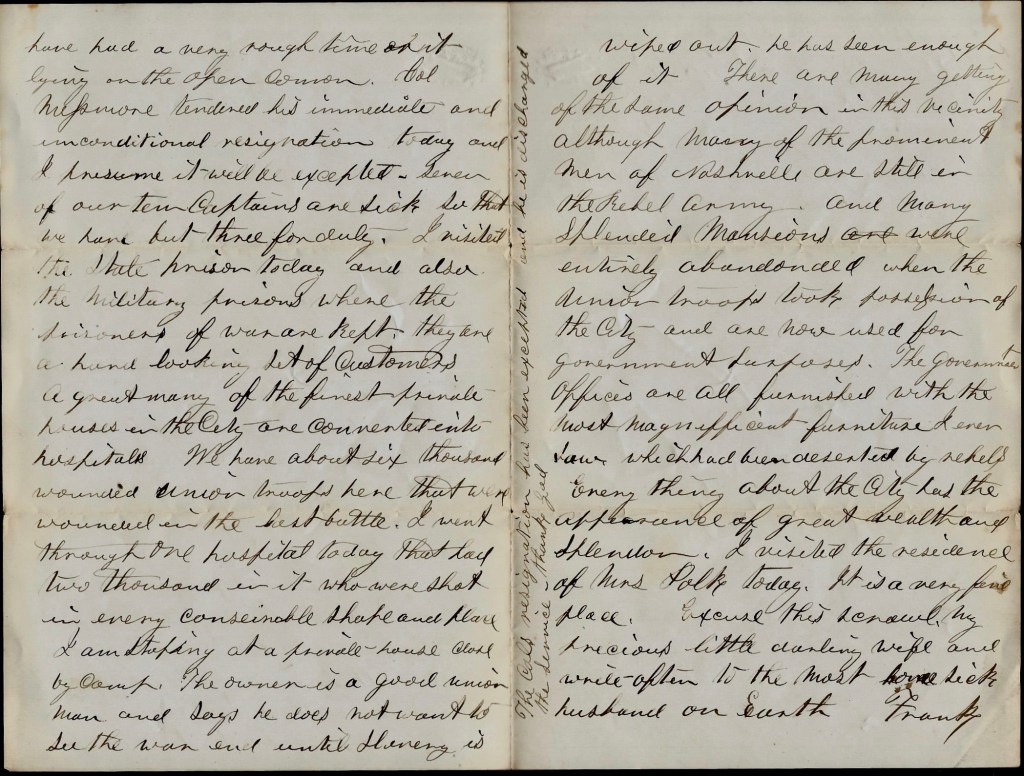 have had a very rough time of it
lying on the open Comon. Col
Messmore tendered his immediate and
unconditional resignation today and
I presume it will be excepted - Seven
of our ten Captains are sick so that
we have but three for duty. I visited
the State prison today and also
the Military prisons where the
prisoners of war are kept. they are
a hard looking set of Customers
A great many of the finest private
houses in the City are converted into
hospitals We have about six thousand
wounded Union troops here that were
wounded in the last battle. I went
through one hospital today that had
two thousand in it who were shot
in every conseivable shape and place
I am stoping at a private house close
by Camp. The owner is a good union
man and says he does not want to
see the war end until Slavery is
The Cols resignation has been excepted and he is discharged
the service thank God
wiped out. he has seen enough
of it There are many getting
of the same opinion in this vicinity
although many of the prominent
men of Nashville are still in
the Rebel army. and many
Splended Mansions are were
entirely abandoned when the
Union troops took possession of
the City and are now used for
government purposes. The Government
Offices are all furnished with the
most magnefficent furniture I ever
saw which had been deserted by rebels
Every thing about the City has the
appearence of great wealth and
Splendor. I visited the residence
of Mrs Polk today. It is a very fine
place. Excuse this scrawl. My
precious little darling wife and
write often to the most home sick
husband on Earth Frank